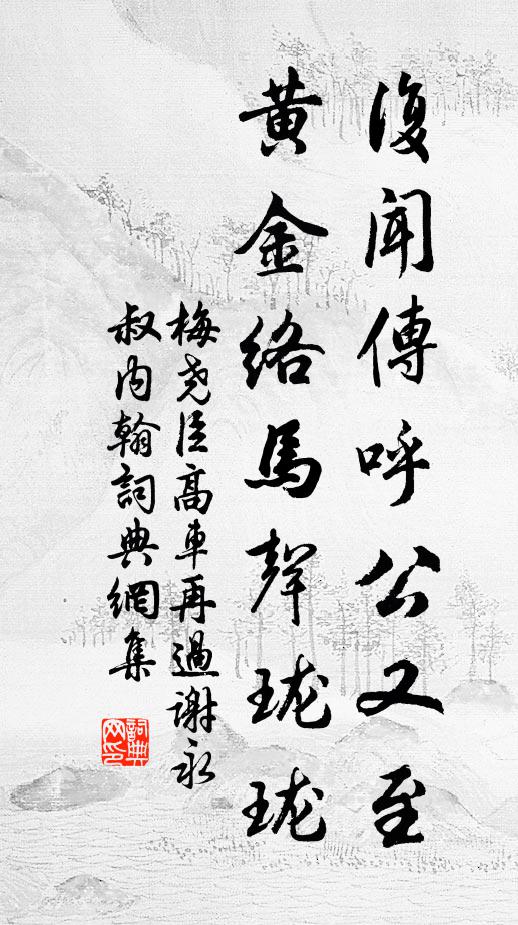 復聞傳呼公又至
黃金絡馬聲瓏瓏
梅堯臣高車再過謝永
叔內翰詞典網集
詞典網印